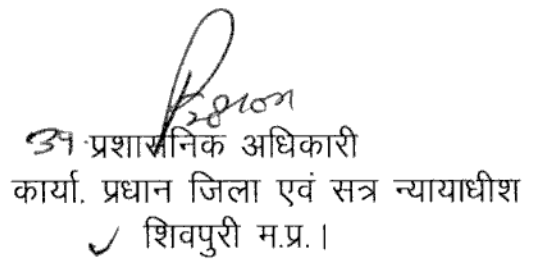 अ. प्रशासनिक अधिकारी
कार्या. प्रधान जिला एवं सत्र न्यायाधीश
शिवपुरी म.प्र.।